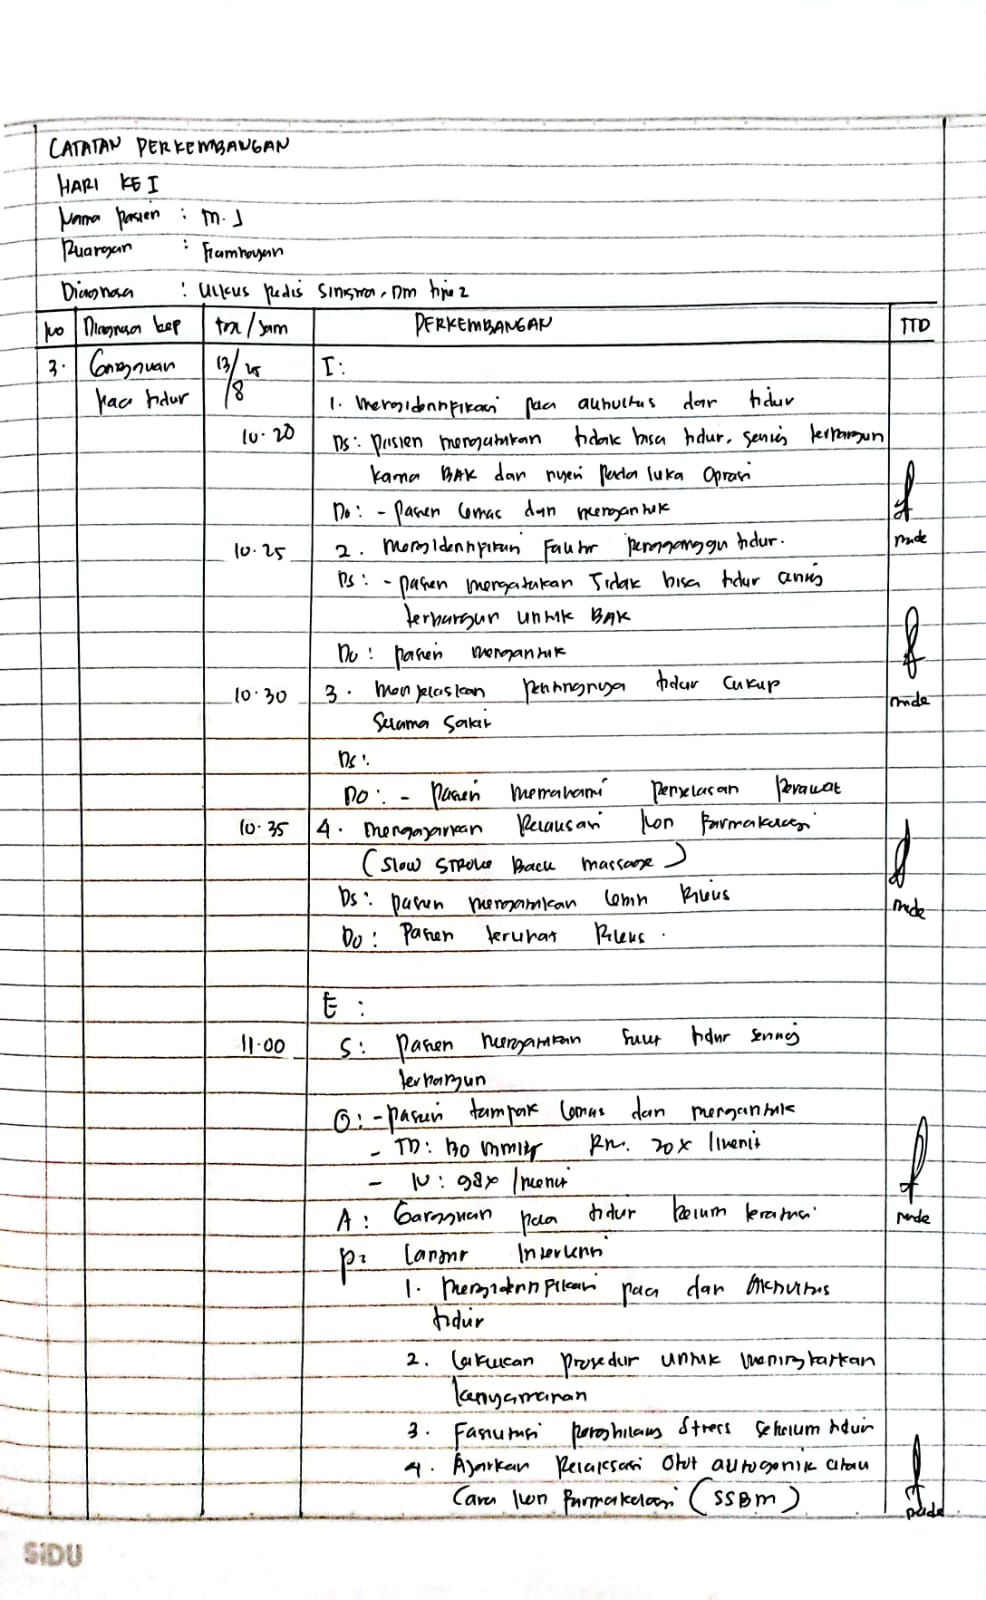 CATATAN PERKEMBANGAN
HARI KE I
Nama pasien : M. J
Ruangan :
Diagnosa : Ulkus pedis Sinistra, DM tipe 2
No Diagnosa kep tgl / Jam PERKEMBANGAN TTD
3. Gangguan 13/25 I:
pola tidur /8 1. Mengidentifikasi pola aktivitas dan tidur
10.20 Ds: pasien mengatakan tidak bisa tidur, sering terbangun
karna BAK dan nyeri pada luka Oprasi
Do: - Pasien lemas dan mengantuk
10.25 2. Mengidentifikasi Faktor pengganggu tidur.
Ds: - pasien mengatakan Tidak bisa tidur
terbangun untuk BAK
Do: pasien mengantuk
10.30 3. Menjelaskan pentingnya tidur cukup
Selama Sakit
Ds:
DO: - pasien memahami penjelasan perawat
10.35 4. mengajarkan Relaksasi Non Farmakologi
(Slow STROKE Back massage)
Ds: pasien mengatakan lebih Rileks
Do: Pasien terlihat Rileks.
E :
11.00 S: pasien mengatakan saat tidur sering
terbangun
O: - pasien tampak lemas dan mengantuk
- TD: 130 mmHg RR. 20x /menit
- N: 98x /menit
A: Gangguan pola tidur belum teratasi
P: Lanjut Intervensi
1. Mengidentifikasi pola dan Aktivitas
tidur
2. Lakukan prosedur untuk meningkatkan
kenyamanan
3. Fasilitasi penghilang Stress sebelum tidur
4. Ajarkan Relaksasi Otot autogenik atau
Cara Non Farmakologi (SSBM)
SiDU